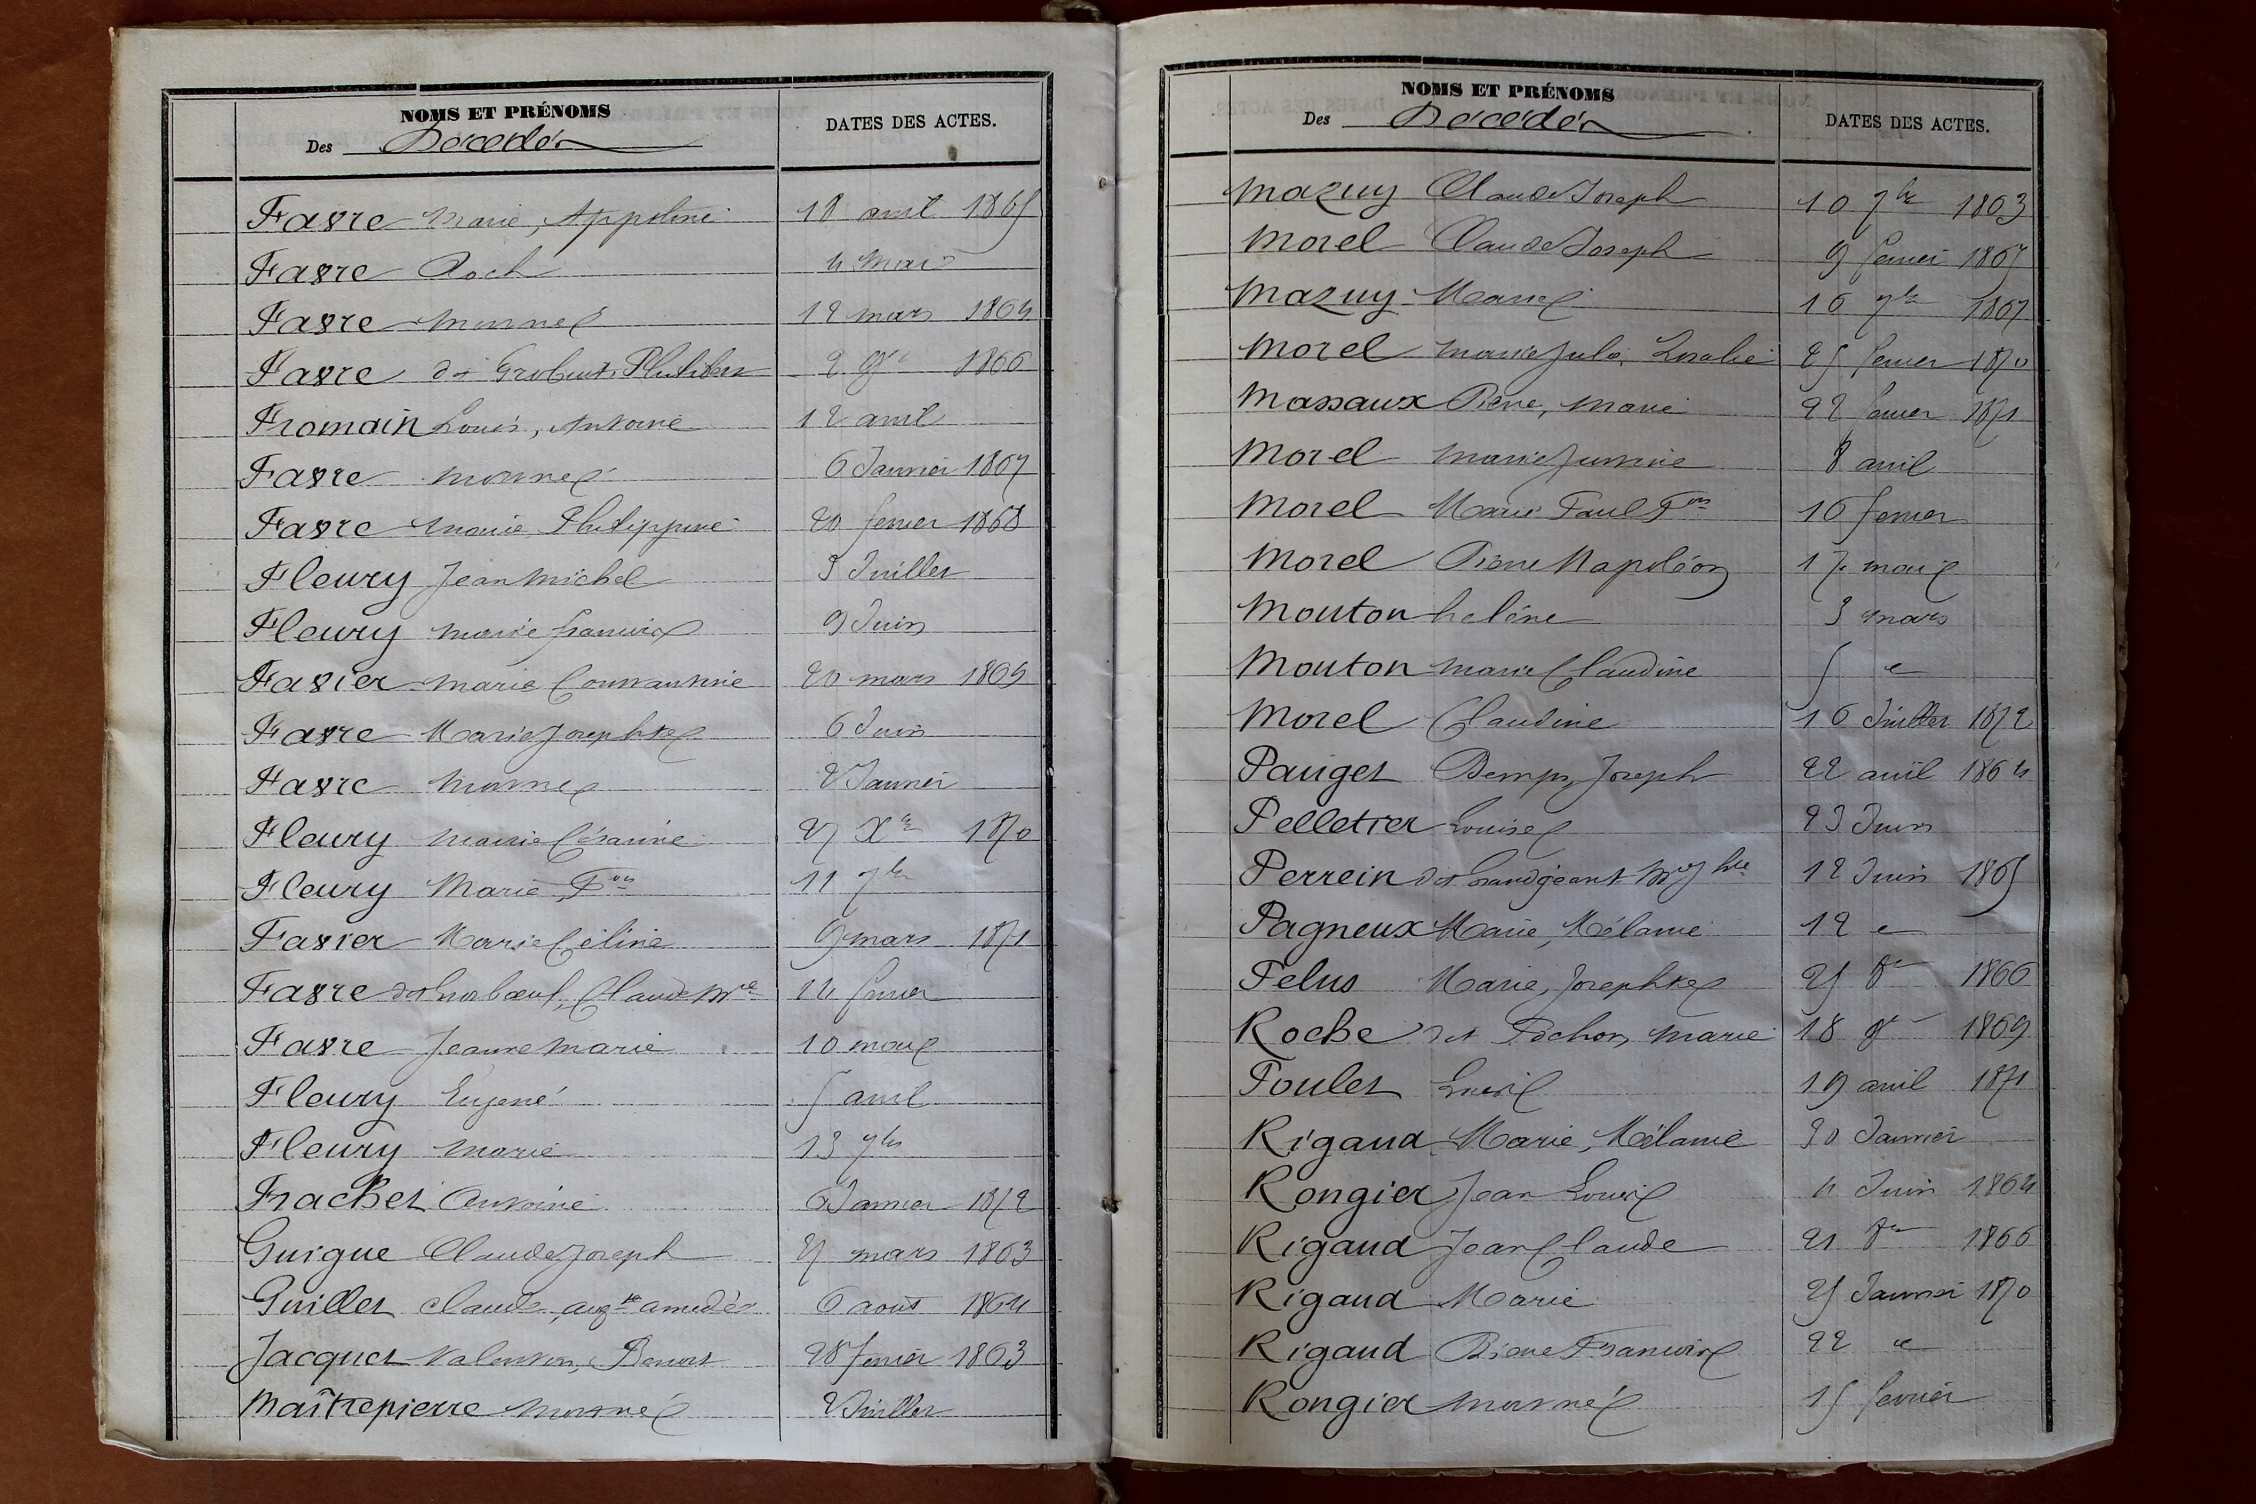 NOMS ET PRÉNOMS
Des Décédés
DATES DES ACTES.
Favre Marie, Appoline 18 avril 1865
Favre Roch 4 Mai
Favre mornné 12 mars 1864
Favre dit Grobuet Philibert 2 9bre 1866
Fromain Louis, Antoine 12 avril
Favre mornné 6 Janvier 1867
Favre Marie Philippine 20 fevrier 1868
Fleury Jean Michel 3 Juillet
Fleury Marie françoise 9 Juin
Favier Marie Constantine 20 mars 1869
Favre Marie Josephte 6 Juin
Favre mornné 2 Janvier
Fleury Marie Césarine 27 Xbre 1870
Fleury Marie, Fois 11 7bre
Favier Marie Celine 9 mars 1871
Favre dit Grosboeuf, Claude Mie 14 fevrier
Favre Jeanne Marie 10 mars
Fleury Eugene 5 avril
Fleury Marie 13 7bre
Frachet Antoine 6 Janvier 1872
Guigue Claude Joseph 27 mars 1863
Guillet Claude, augte amedée 6 août 1864
Jacquet Valentin, Benoit 28 fevrier 1863
Maîtrepierre mornné 2 Juillet
NOMS ET PRÉNOMS
Des Décédés
DATES DES ACTES.
Mazuy Claude Joseph 10 7bre 1863
Morel Claude Joseph 9 fevrier 1865
Mazuy Marie 16 7bre 1867
Morel Marie Julie, Rosalie 25 fevrier 1870
Massaux Pierre, Marie 22 Janvier 1871
Morel Marie Justine 8 avril
Morel Marie Paul Fois 16 fevrier
Morel Pierre Napoléon 17 mars
Mouton helène 3 mars
Mouton Marie Claudine 5 "
Morel Claudine 16 Juillet 1872
Pauget Joseph 22 avril 1864
Pelletier Louise 23 Juin
Perrein dit Grandgeant 12 Juin 1865
Pagneux Marie, Mélanie 12 "
Pelus Marie, Josephte 25 8bre 1866
Roche dit Pochon, Marie 18 9bre 1869
Poulet Louis 19 avril 1871
Rigaud Marie, Mélanie 30 Janvier
Rongier Jean Louis 4 Juin 1864
Rigaud Jean Claude 21 8bre 1866
Rigaud Marie 25 Janvier 1870
Rigaud Pierre François 22 "
Rongier mornné 15 fevrier